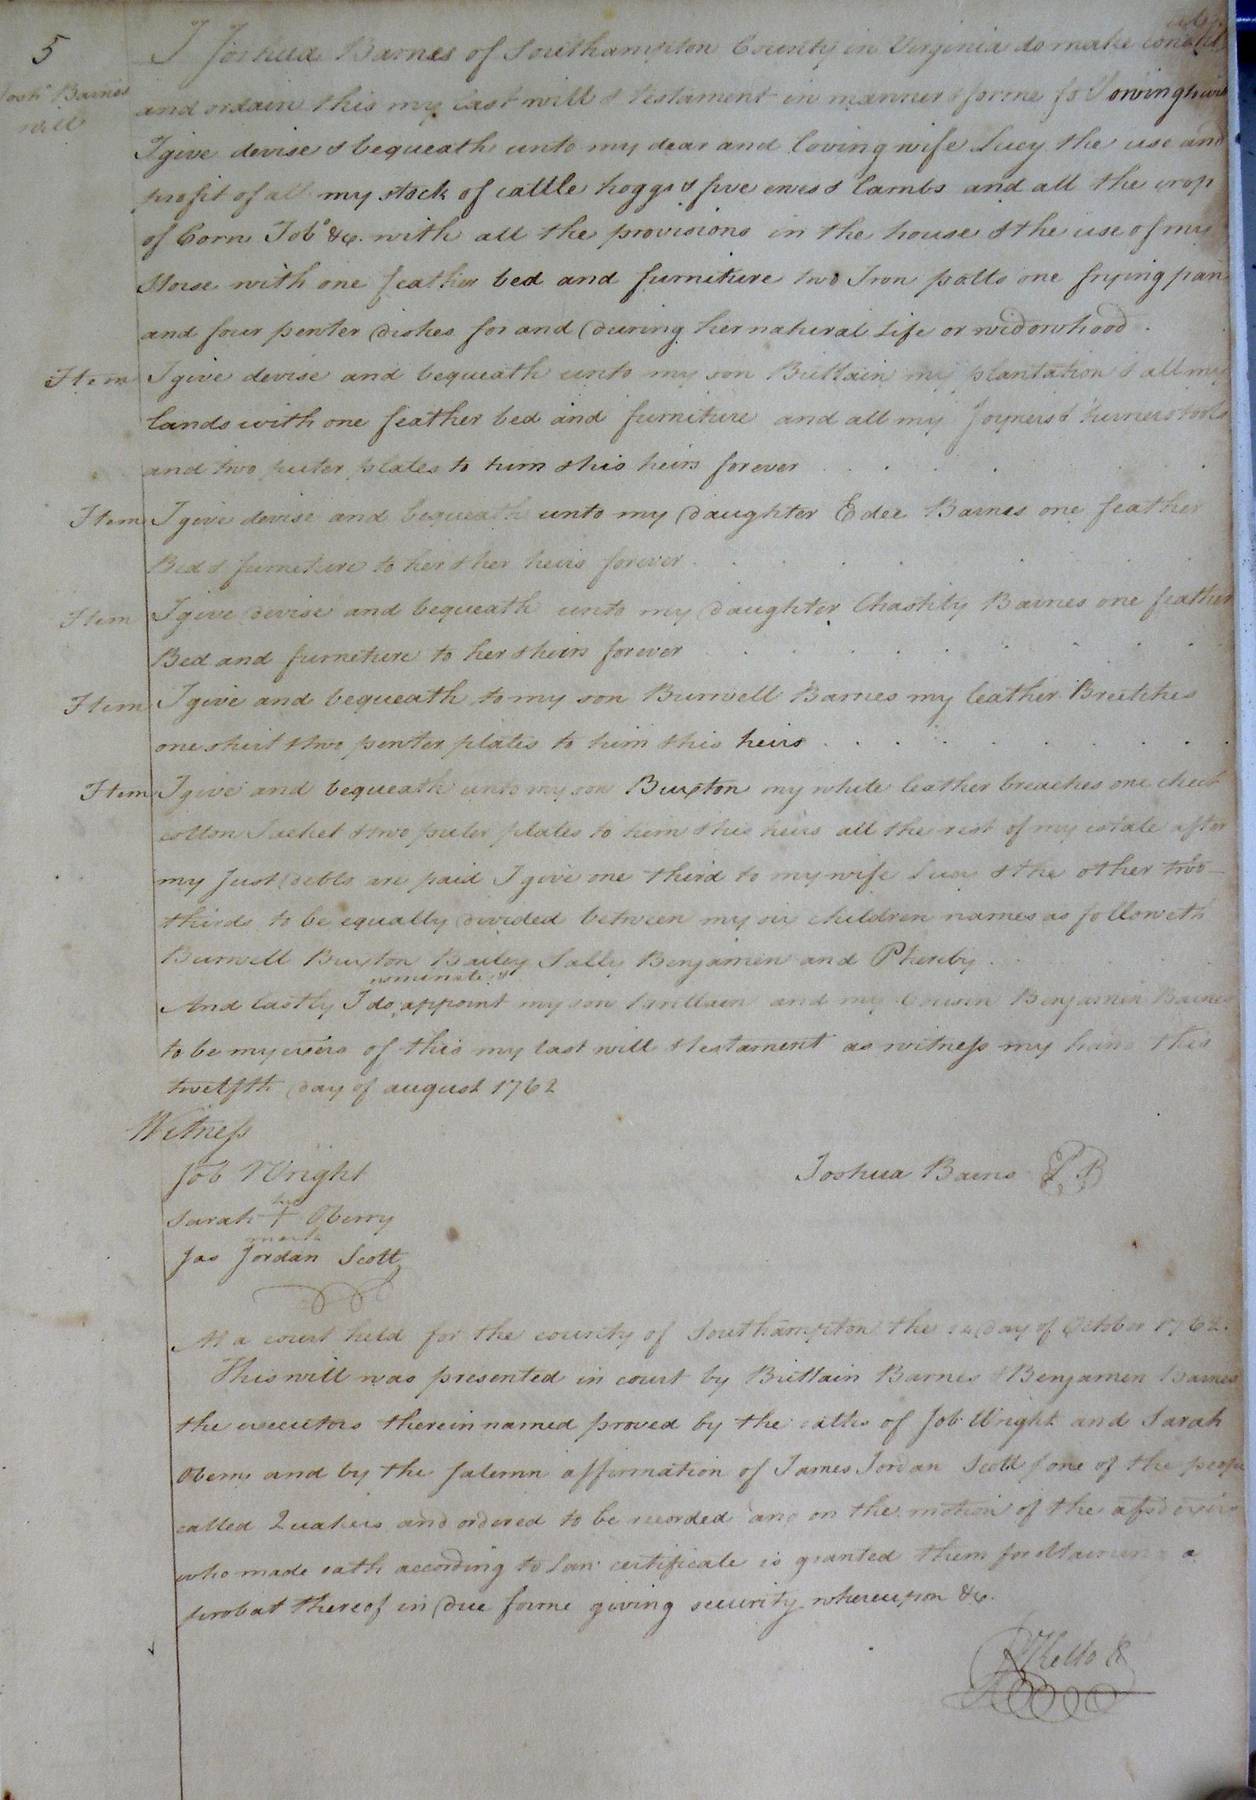 5
Josh Barnes
will
I Joshua Barnes of Southampton County in Virginia do make
and ordain this my last will & testament in manner & forme following
I give devise & bequeath unto my dear and loving wife Lucy the use and
profit of all my stock of cattle hoggs & five ewes & lambs and all the crop
of Corn Tobo &c. with all the provisions in the house & the use of my
Horse with one feather bed and furniture two Iron potts one frying pan
and four peuter dishes for and during her natural Life or widowhood.
Item I give devise and bequeath unto my son Brittain my plantation & all my
lands with one feather bed and furniture and all my Joyners & turners tools
and two puter plates to him & his heirs forever
Item I give devise and bequeath unto my daughter Edee Barnes one feather
Bed & furneture to her & her heirs forever
Item I give devise and bequeath unto my daughter Chastity Barnes one feather
Bed and furneture to her & heirs forever
Item I give and bequeath to my son Burwell Barnes my leather Breetches
one shirt & two peuter plates to him & his heirs
Item I give and bequeath unto my son Buxton my white leather breaches one check
cotton Jacket & two puter plates to him & his heirs all the rest of my estate after
my Just debts are paid I give one third to my wife Lucy & the other two
thirds to be equally divided between my six children names as followeth
Burwell Buxton Bailey Sally Benjamin and Phereby
nominate &
And lastly I do appoint my son Brittain and my Cousin Benjamin Barnes
to be my exors of this my last will & testament as witness my hand this
twelfth day of august 1762
Witness
Job Wright
her
Sarah + Oberry
mark
Jas Jordan Scott
Joshua Barns
At a court held for the county of Southampton the day of October 1762.
This will was presented in court by Brittain Barnes & Benjamen Barnes
the executors therein named proved by the oaths of Job Wright and Sarah
Oberry and by the solemn affirmation of James Jordan Scott one of the people
called Quakers and ordered to be recorded and on the motion of the
who made oath according to Law certificate is granted them for obtaining a
probat thereof in due forme giving security whereupon &c.